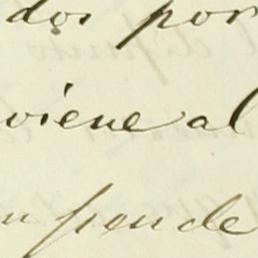 dos por
viene al
n pende